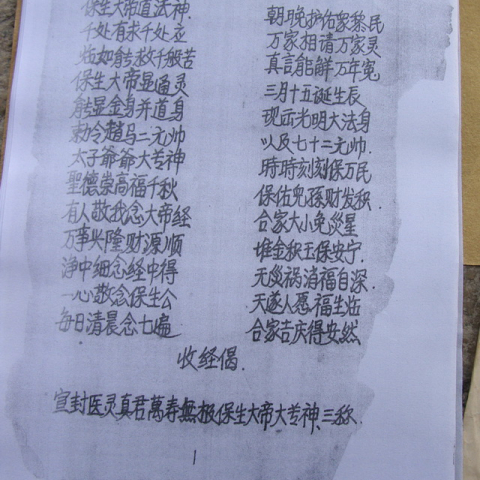 保生大帝道法神. 朝晚护佑家黎民
千处有求千处应 万家相请万家灵
烧如能救千般苦 真言能解万年冤
保生大帝显通灵 三月十五诞生辰
能显金身并道身 现示光明大法身
勅令趙马二元帅 以及七十二元帅.
太子爺爺大专神 時時刻刻保万民
聖德崇高福千秋 保佑児孫财发积.
有人敬我念大帝経 合家大小免災星
万事兴隆财源顺 堆金积玉保安宁.
净中细念経中得 无災祸消福自深.
一心敬念保生公 天遂人愿福生临
每日清晨念七遍 合家吉庆得安然
收经偈.
宣封医灵真君萬寿無极保生大帝大专神、三称.
1